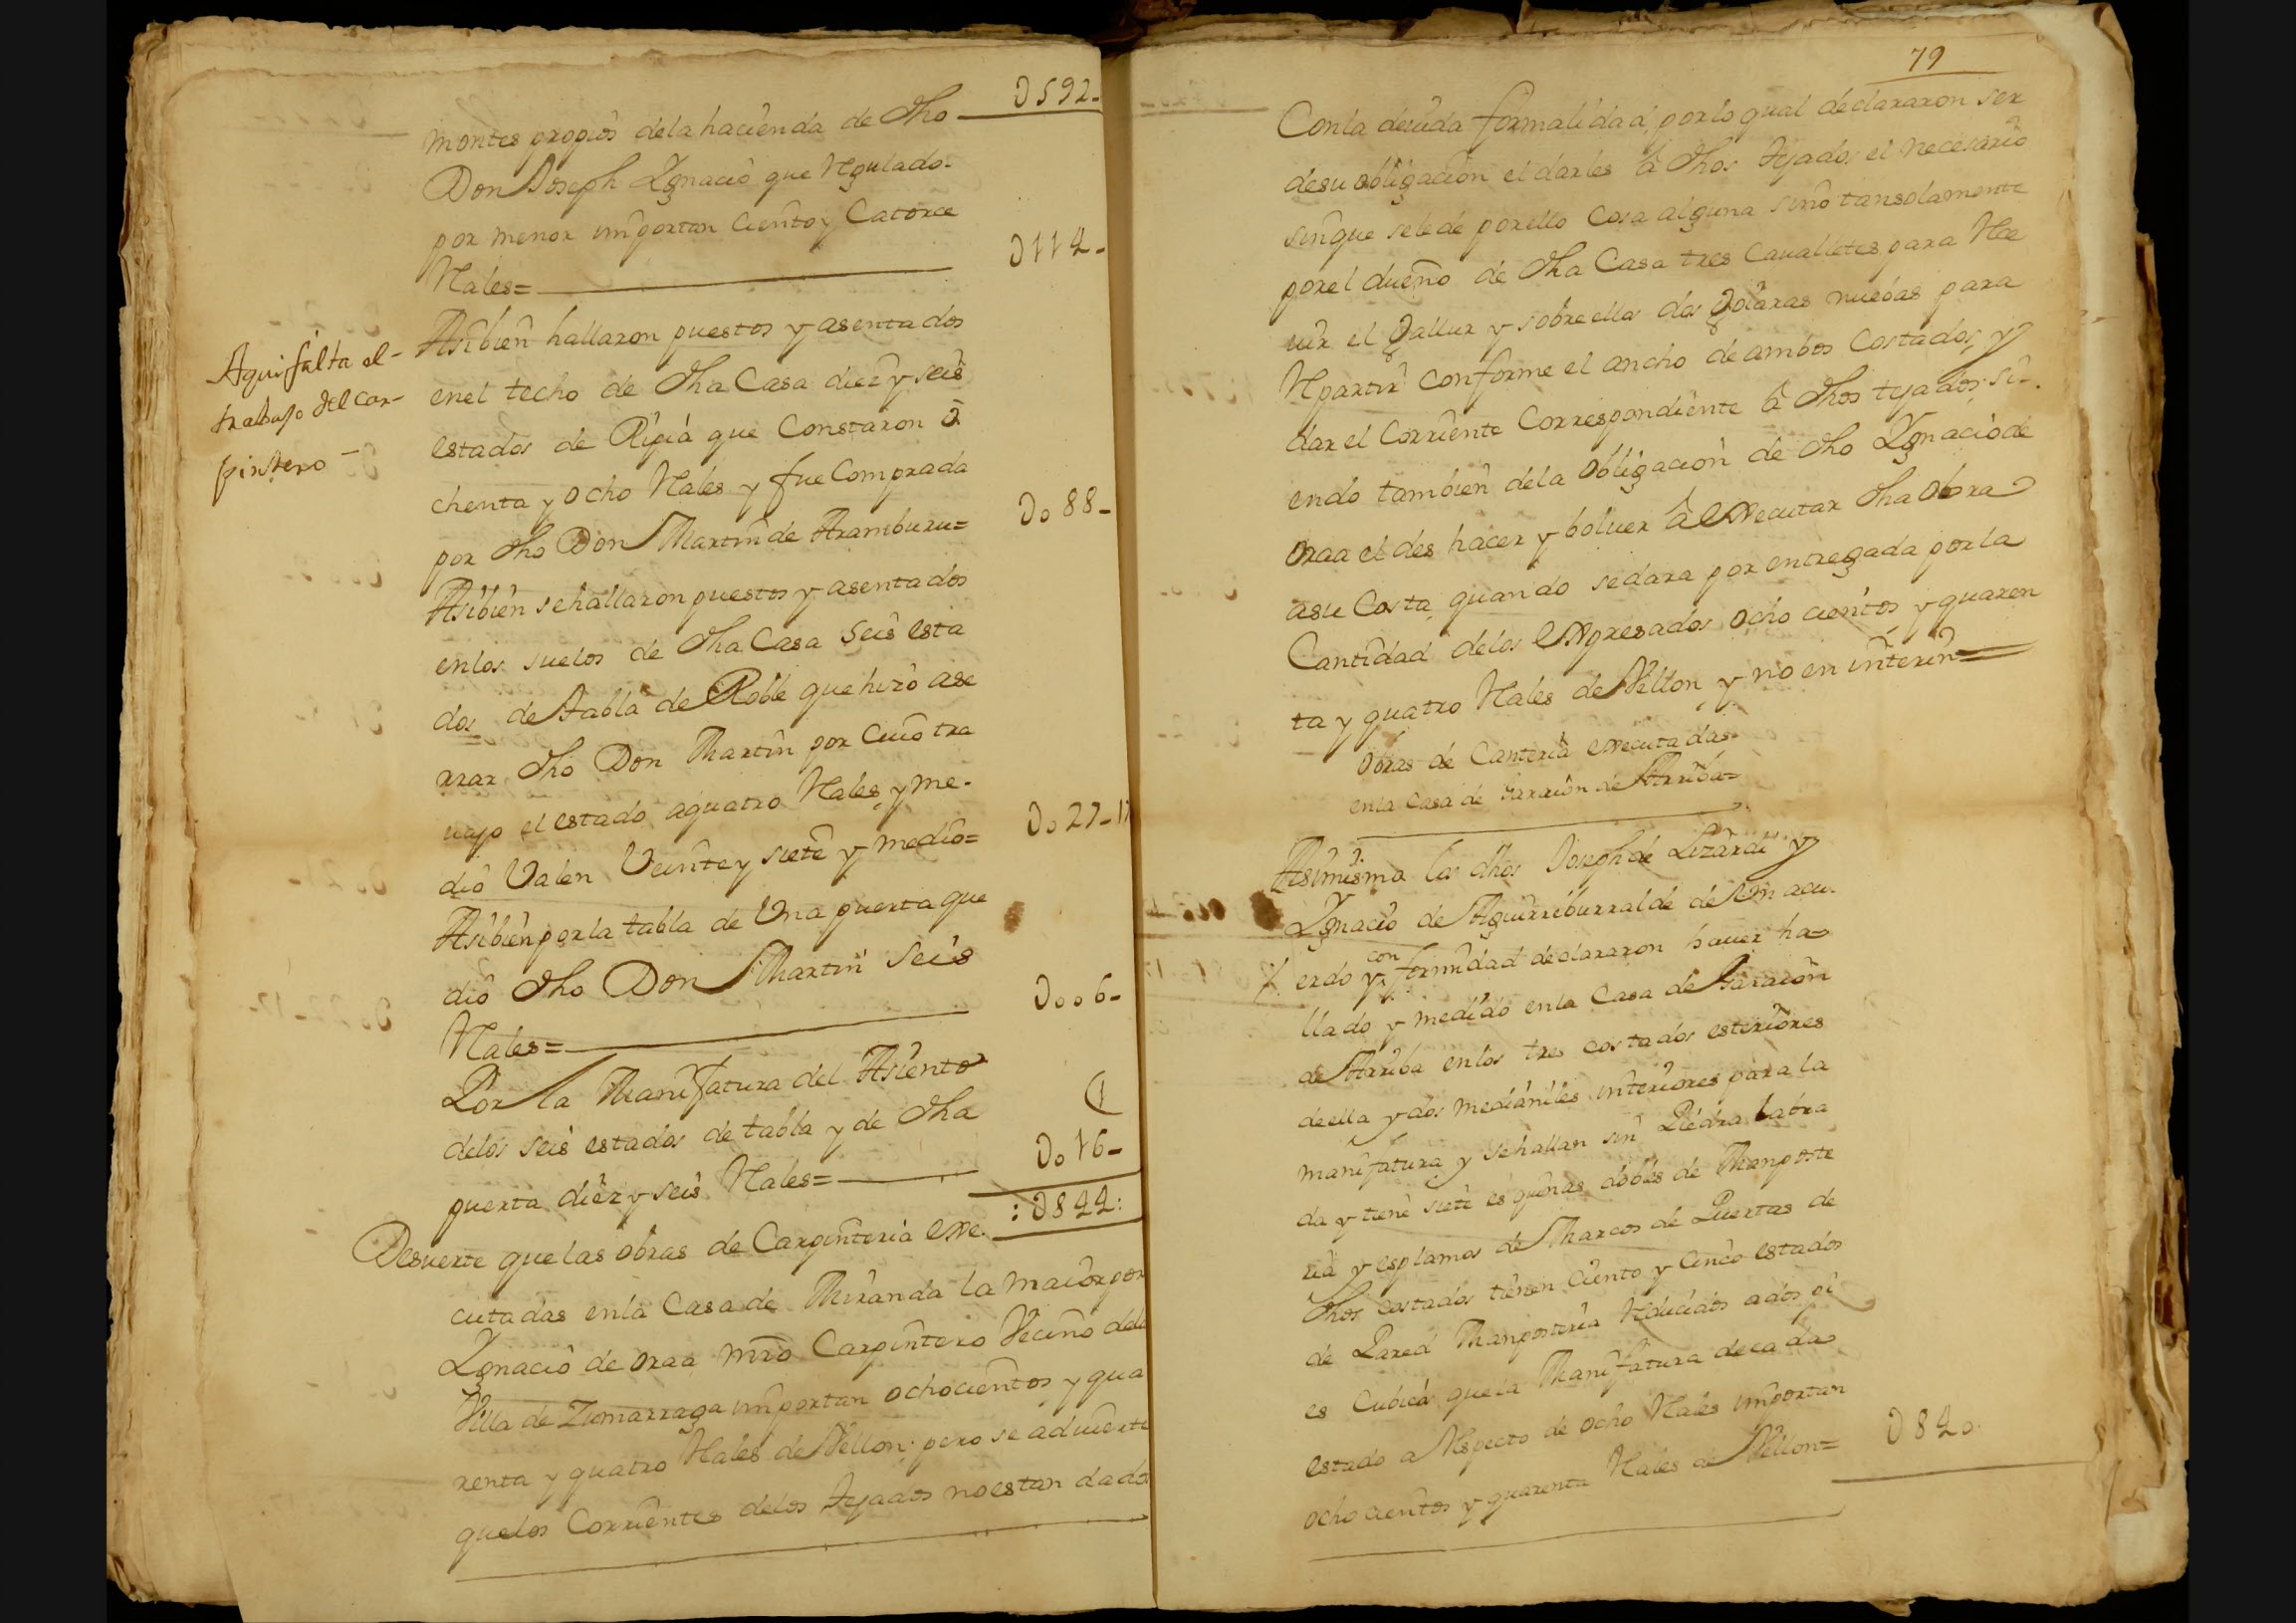 D592-
montes propios dela hacienda de dho
Don Joseph Ygnacio que Regulado
por menor importan Ciento y Catorce
Rales= D114-
Asibien hallaron puestos y asentados
Aqui falta el-
trabajo del car-
pintero -
enel techo de dha Casa diez y seis
estados de Ripia que Constaron o
chenta y ocho Rales y fue Comprada
por dho Don Martin de Aramburu= Do88-
Asibien se hallaron puestos y asentados
enlos suelos de dha Casa Seis esta
dos de tabla de Roble que hizo ase
rrar dho Don Martin por Cuio tra
uajo el estado aquatro Rales y me-
dio Valen Veinte y siete y medio= Do27-17
Asibien por la tabla de Una puerta que
dio dho Don Martin Seis
Rales= Doo6-
Por la Manifatura del Asiento
delos seis estados de tabla y de dha
puerta diez y seis Rales= Do16-
:D844:
Desuerte que las obras de Carpinteria exe-
cutadas enla Casa de Miranda la maior por
Ygnacio de oraa Mro Carpintero Vecino dela
Villa de Zumarraga importan ochocientos y qua
renta y quatro Rales de Vellon; pero se aduierte
quelos Corrientes delos tejados no estan dados
79
Conla deuida formalidad, por lo qual declararon ser
desu obligacion el darles à dhos tejados el necesario
sinque sele de por ello Cosa alguna sino tansolamente
porel dueño de dha Casa tres Caualletes para Rece
uir el Gallur y sobre ellos dos Goiaras nuebas para
Repartir conforme el ancho de ambos Costados, y
dar el Corriente Correspondiente à dhos tejados; si-
endo tambien dela obligacion de dho Ygnacio de
oraa el des hacer y boluer à executar dha obra
asu Costa, quando sedara por entregada por la
Cantidad delos expresados ocho cientos y quaren
ta y quatro Rales de Vellon, y no en interin=
Obras de Canteria executadas
enla Casa de Garrion de Arriba=
Asimismo los dhos Joseph de Lizardi y
Ygnacio de Aguirreburralde de Un acu-
erdo y conformidad declararon hauer ha-
llado y medido enla Casa de Garaion
de Arriba enlos tres costados esteriores
de ella y dos medianiles interiores para la
manifatura y se hallan sin Piedra labra
da y tiene siete esquinas dobles de Manposte
ria y esplamos de Marcos de Puertas de
dhos costados tienen Ciento y Cinco estados
de Pared Manposteria Reducidos ados pi
es Cubica quela Manifatura decada
estado a Respecto de ocho Rales importan
ocho cientos y quarenta Rales de Vellon= D840.